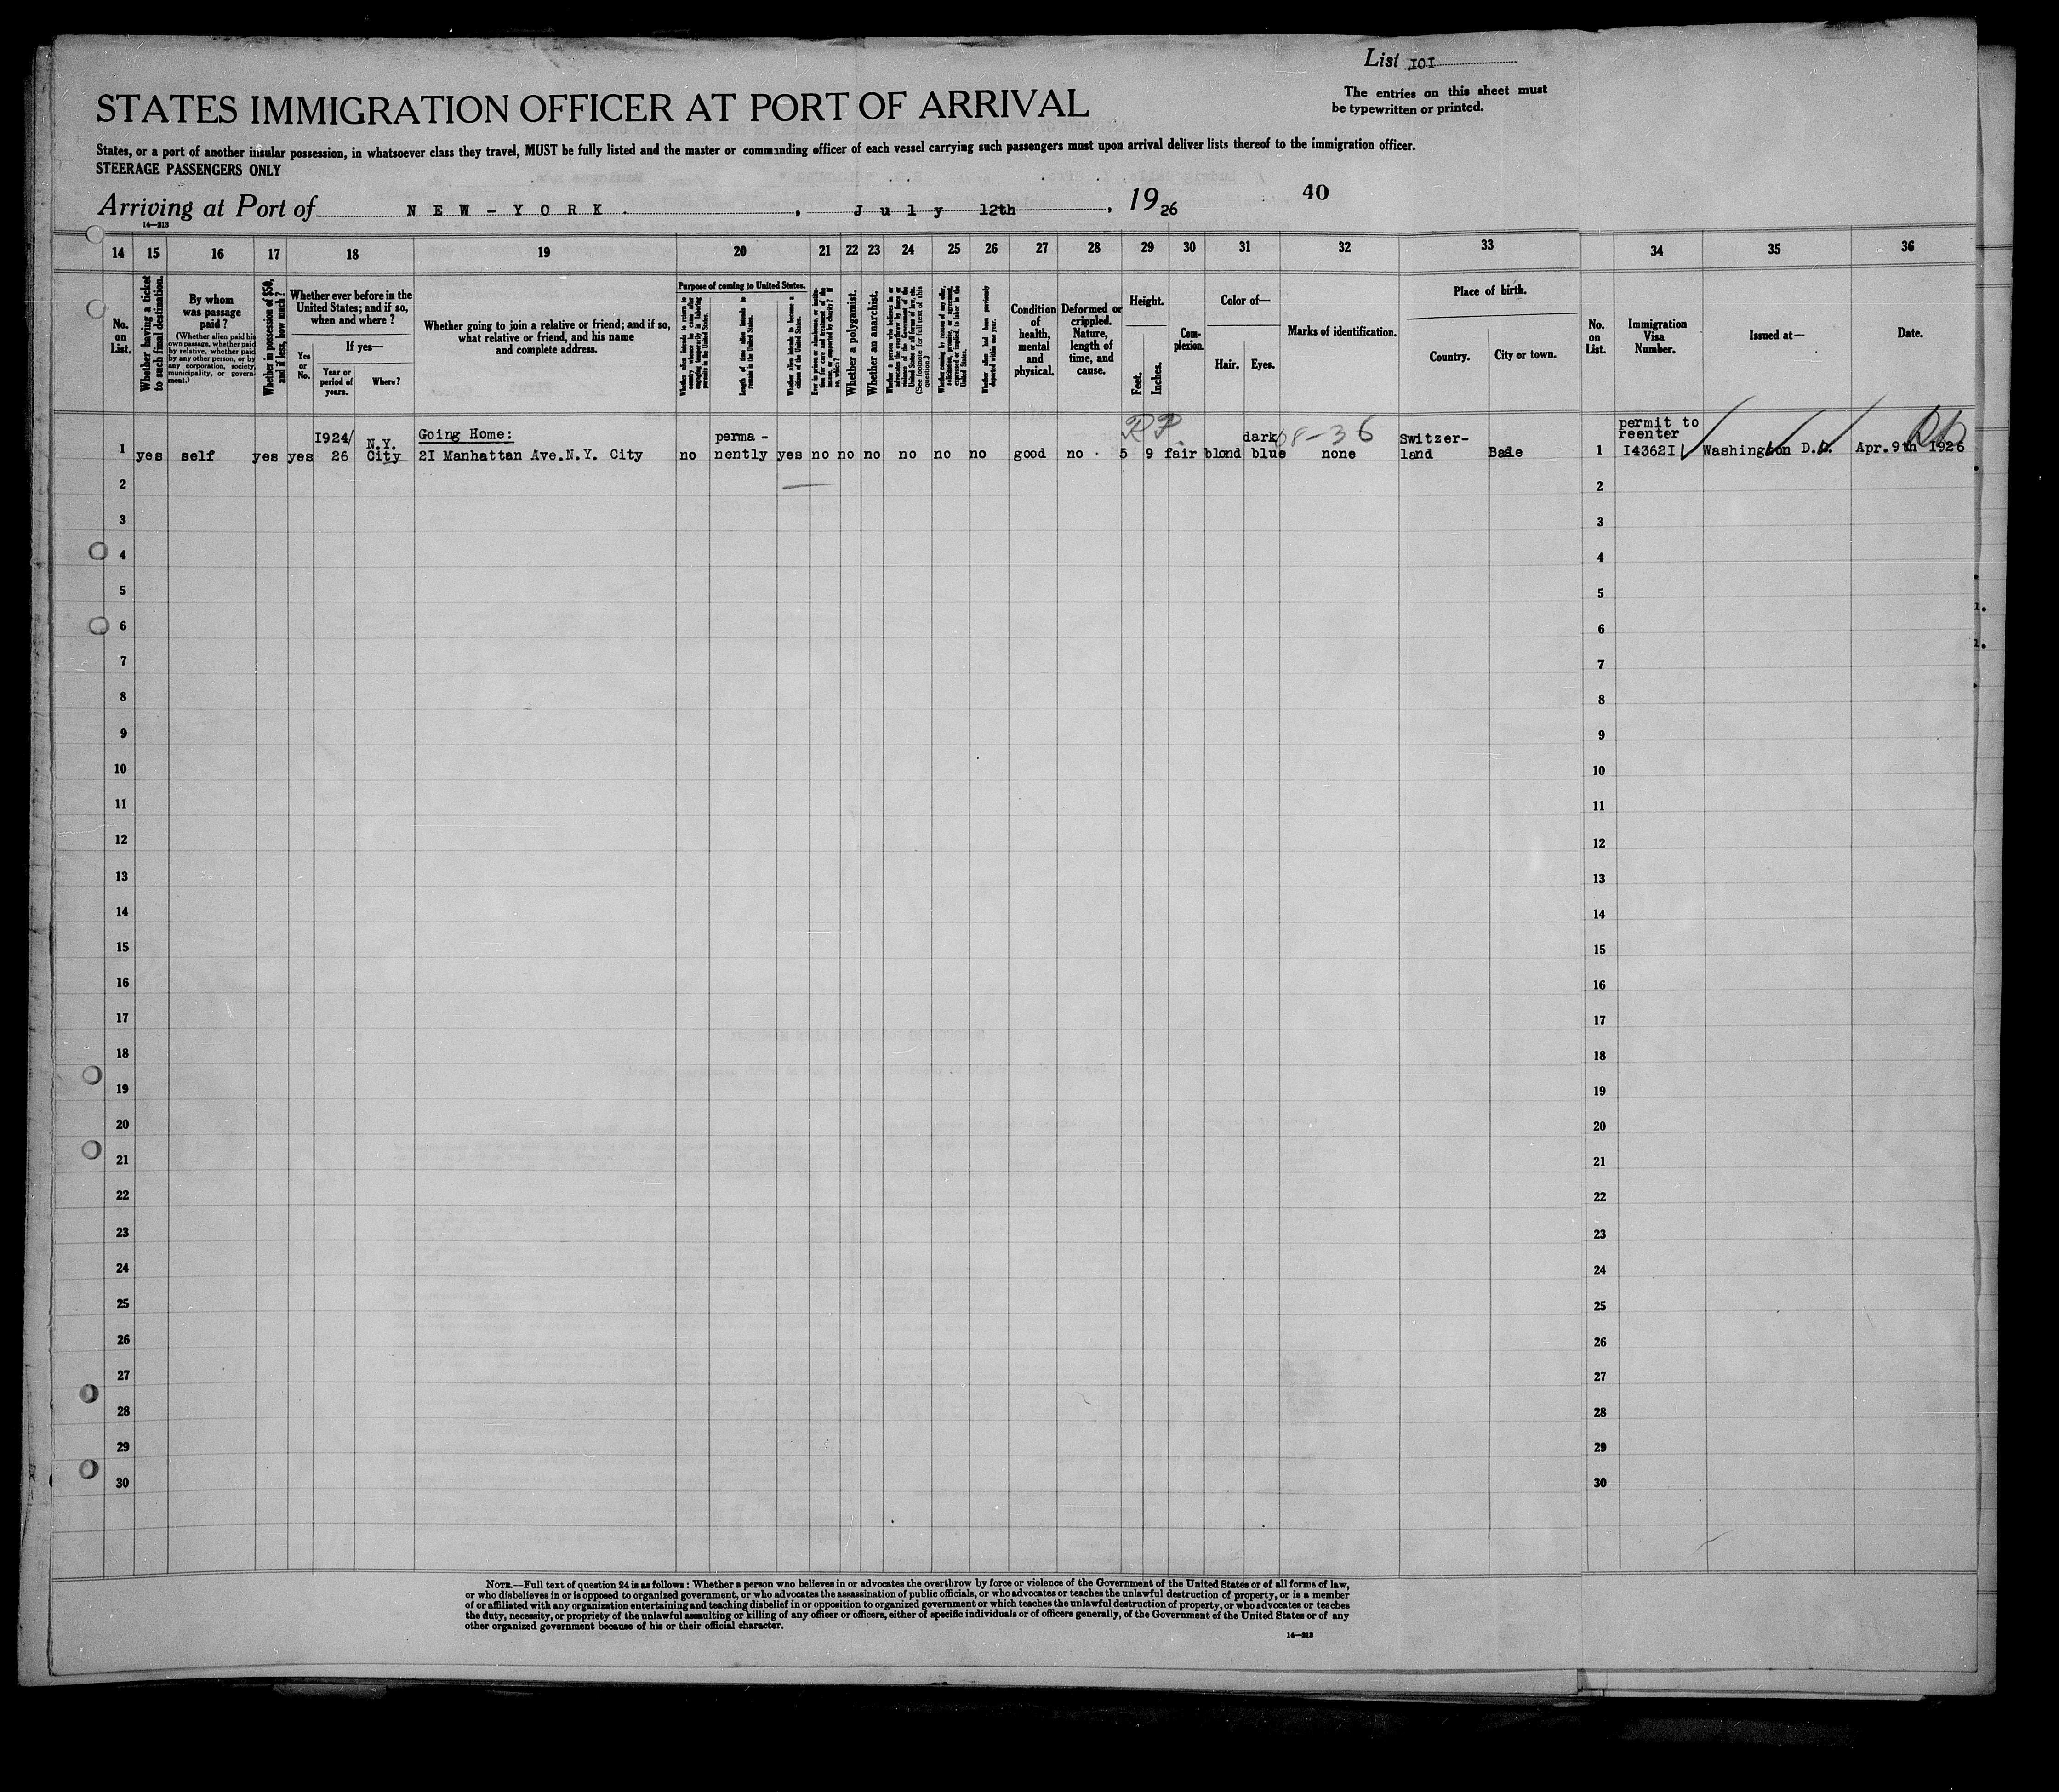 List 101
The entries on this sheet must
be typewritten or printed.
STATES IMMIGRATION OFFICER AT PORT OF ARRIVAL
States, or a port of another insular possession, in whatsoever class they travel, MUST be fully listed and the master or commanding officer of each vessel carrying such passengers must upon arrival deliver lists thereof to the immigration officer.
STEERAGE PASSENGERS ONLY
Arriving at Port of NEW-YORK. , July 12th , 1926
40
14—213
14 15 16 17 18 19 20 21 22 23 24 25 26 27 28 29 30 31 32 33 34 35 36
No. on List.
Whether having a ticket to such final destination.
By whom was passage paid?
(Whether alien paid his own passage, whether paid by relative, whether paid by any other person, or by any corporation, society, municipality, or government.)
Whether in possession of $50, and if less, how much?
Whether ever before in the United States; and if so, when and where?
If yes—
Yes or No.
Year or period of years.
Where?
Whether going to join a relative or friend; and if so, what relative or friend, and his name and complete address.
Purpose of coming to United States.
Whether alien intends to return to country whence he came after engaging temporarily in laboring pursuits in the United States.
Length of time alien intends to remain in the United States.
Whether alien intends to become a citizen of the United States.
Whether a polygamist.
Whether an anarchist.
Condition of health, mental and physical.
Deformed or crippled. Nature, length of time, and cause.
Height.
Feet.
Inches.
Complexion.
Color of—
Hair.
Eyes.
Marks of identification.
Place of birth.
Country.
City or town.
No. on List.
Immigration Visa Number.
Issued at—
Date.
1 yes self yes yes 1924/26 N.Y. City Going Home: 21 Manhattan Ave.N.Y. City no perma - nently yes no no no no no no good no 5 9 fair blond dark blue none Switzer- land Basle 1 permit to reenter 143621 Washington D.C. Apr.9th 1926
RP
68-36
2 2
3 3
4 4
5 5
6 6
7 7
8 8
9 9
10 10
11 11
12 12
13 13
14 14
15 15
16 16
17 17
18 18
19 19
20 20
21 21
22 22
23 23
24 24
25 25
26 26
27 27
28 28
29 29
30 30
NOTE.—Full text of question 24 is as follows: Whether a person who believes in or advocates the overthrow by force or violence of the Government of the United States or of all forms of law,
or who disbelieves in or is opposed to organized government, or who advocates the assassination of public officials, or who advocates or teaches the unlawful destruction of property, or is a member
of or affiliated with any organization entertaining and teaching disbelief in or opposition to organized government or which teaches the unlawful destruction of property, or who advocates or teaches
the duty, necessity, or propriety of the unlawful assaulting or killing of any officer or officers, either of specific individuals or of officers generally, of the Government of the United States or of any
other organized government because of his or their official character.
14—213